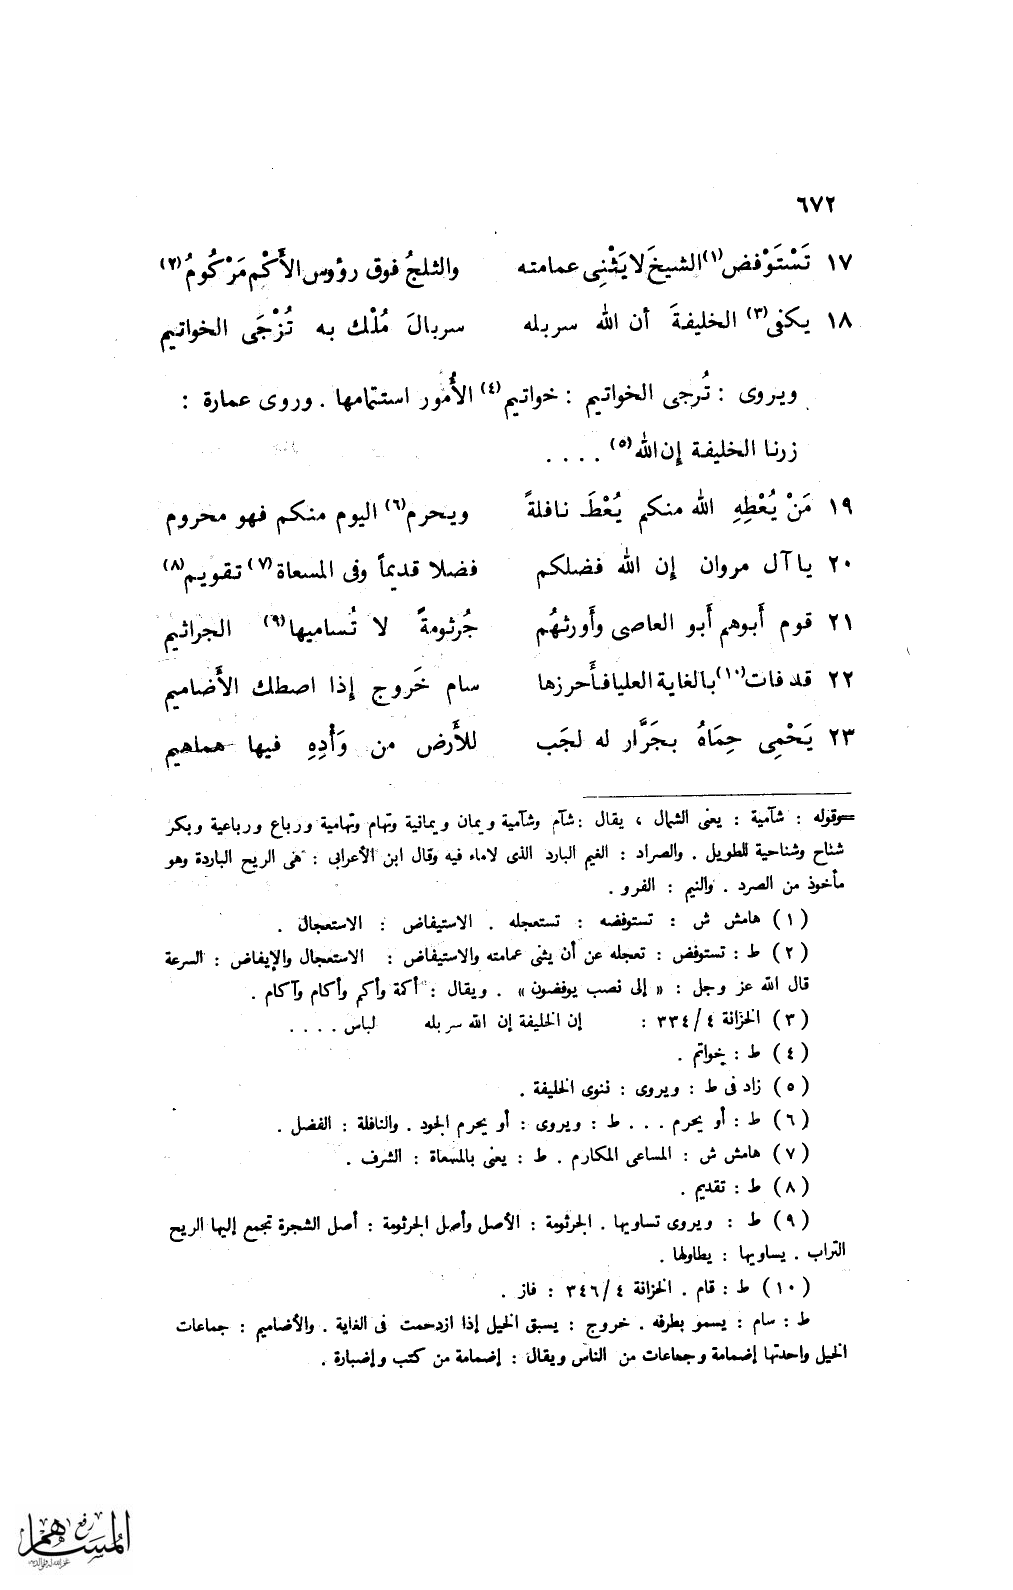 ٦٧٢
١٧ تَسْتَوْفض(١) الشيخَ لا يَثْنِى عمامته والثلجُ فوق رؤوس الأَكْمِ مَرْكُومُ(٢)
١٨ يكفى(٣) الخليفةَ أن الله سربله سربالَ مُلْك به تُزْجَى الخواتيم
ويروى : تُرجى الخواتيم : خواتيم(٤) الأُمور استتمامها . وروى عمارة :
زرنا الخليفة إن الله(٥) . . . .
١٩ مَنْ يُعْطِهِ الله منكم يُعْطَ نافلةً ويحرم(٦) اليوم منكم فهو محروم
٢٠ يا آل مروان إن الله فضلكم فضلا قديماً وفى المسعاة(٧) تقويم(٨)
٢١ قوم أَبوهم أَبو العاصى وأَورثهُم جُرثومةً لا تُساميها(٩) الجراثيم
٢٢ قد فات(١٠) بالغاية العليا فأَحرزها سام خَروج إذا اصطك الأَضاميم
٢٣ يَحْمِى حِمَاهُ بجَرَّار له لجَب للأَرض من وَأْدِهِ فيها هماهيم
=وقوله : شآمية : يعنى الشمال ، يقال : شآم وشآمية ويمان ويمانية وتهام وتهامية ورباع ورباعية وبكر
شناح وشناحية للطويل . والصراد : الغيم البارد الذى لاماء فيه وقال ابن الأعرابى : هى الريح الباردة وهو
مأخوذ من الصرد . والنيم : الفرو .
(١) هامش ش : تستوفضه : تستعجله . الاستيفاض : الاستعجال .
(٢) ط : تستوفض : تعجله عن أن يثنى عمامته والاستيفاض : الاستعجال والإيفاض : السرعة
قال الله عز وجل : « إلى نصب يوفضون » . ويقال : أكمة وأكم وأكام وآكام .
(٣) الخزانة ٤/٣٣٤ : إن الخليفة إن الله سربله لباس . . . .
(٤) ط : خواتم .
(٥) زاد فى ط : ويروى : ننوى الخليفة .
(٦) ط : أو يحرم . . . ط : ويروى : أو يحرم الجود . والنافلة : الفضل .
(٧) هامش ش : المساعى المكارم . ط : يعنى بالمسعاة : الشرف .
(٨) ط : تقديم .
(٩) ط : ويروى تساويها . الجرثومة : الأصل وأصل الجرثومة : أصل الشجرة تجمع إليها الريح
التراب . يساويها : يطاولها .
(١٠) ط : قام . الخزانة ٤/٣٤٦ : فاز .
ط : سام : يسمو بطرفه . خروج : يسبق الخيل إذا ازدحمت فى الغاية . والأضاميم : جماعات
الخيل واحدتها إضمامة وجماعات من الناس ويقال : إضمامة من كتب وإضبارة .